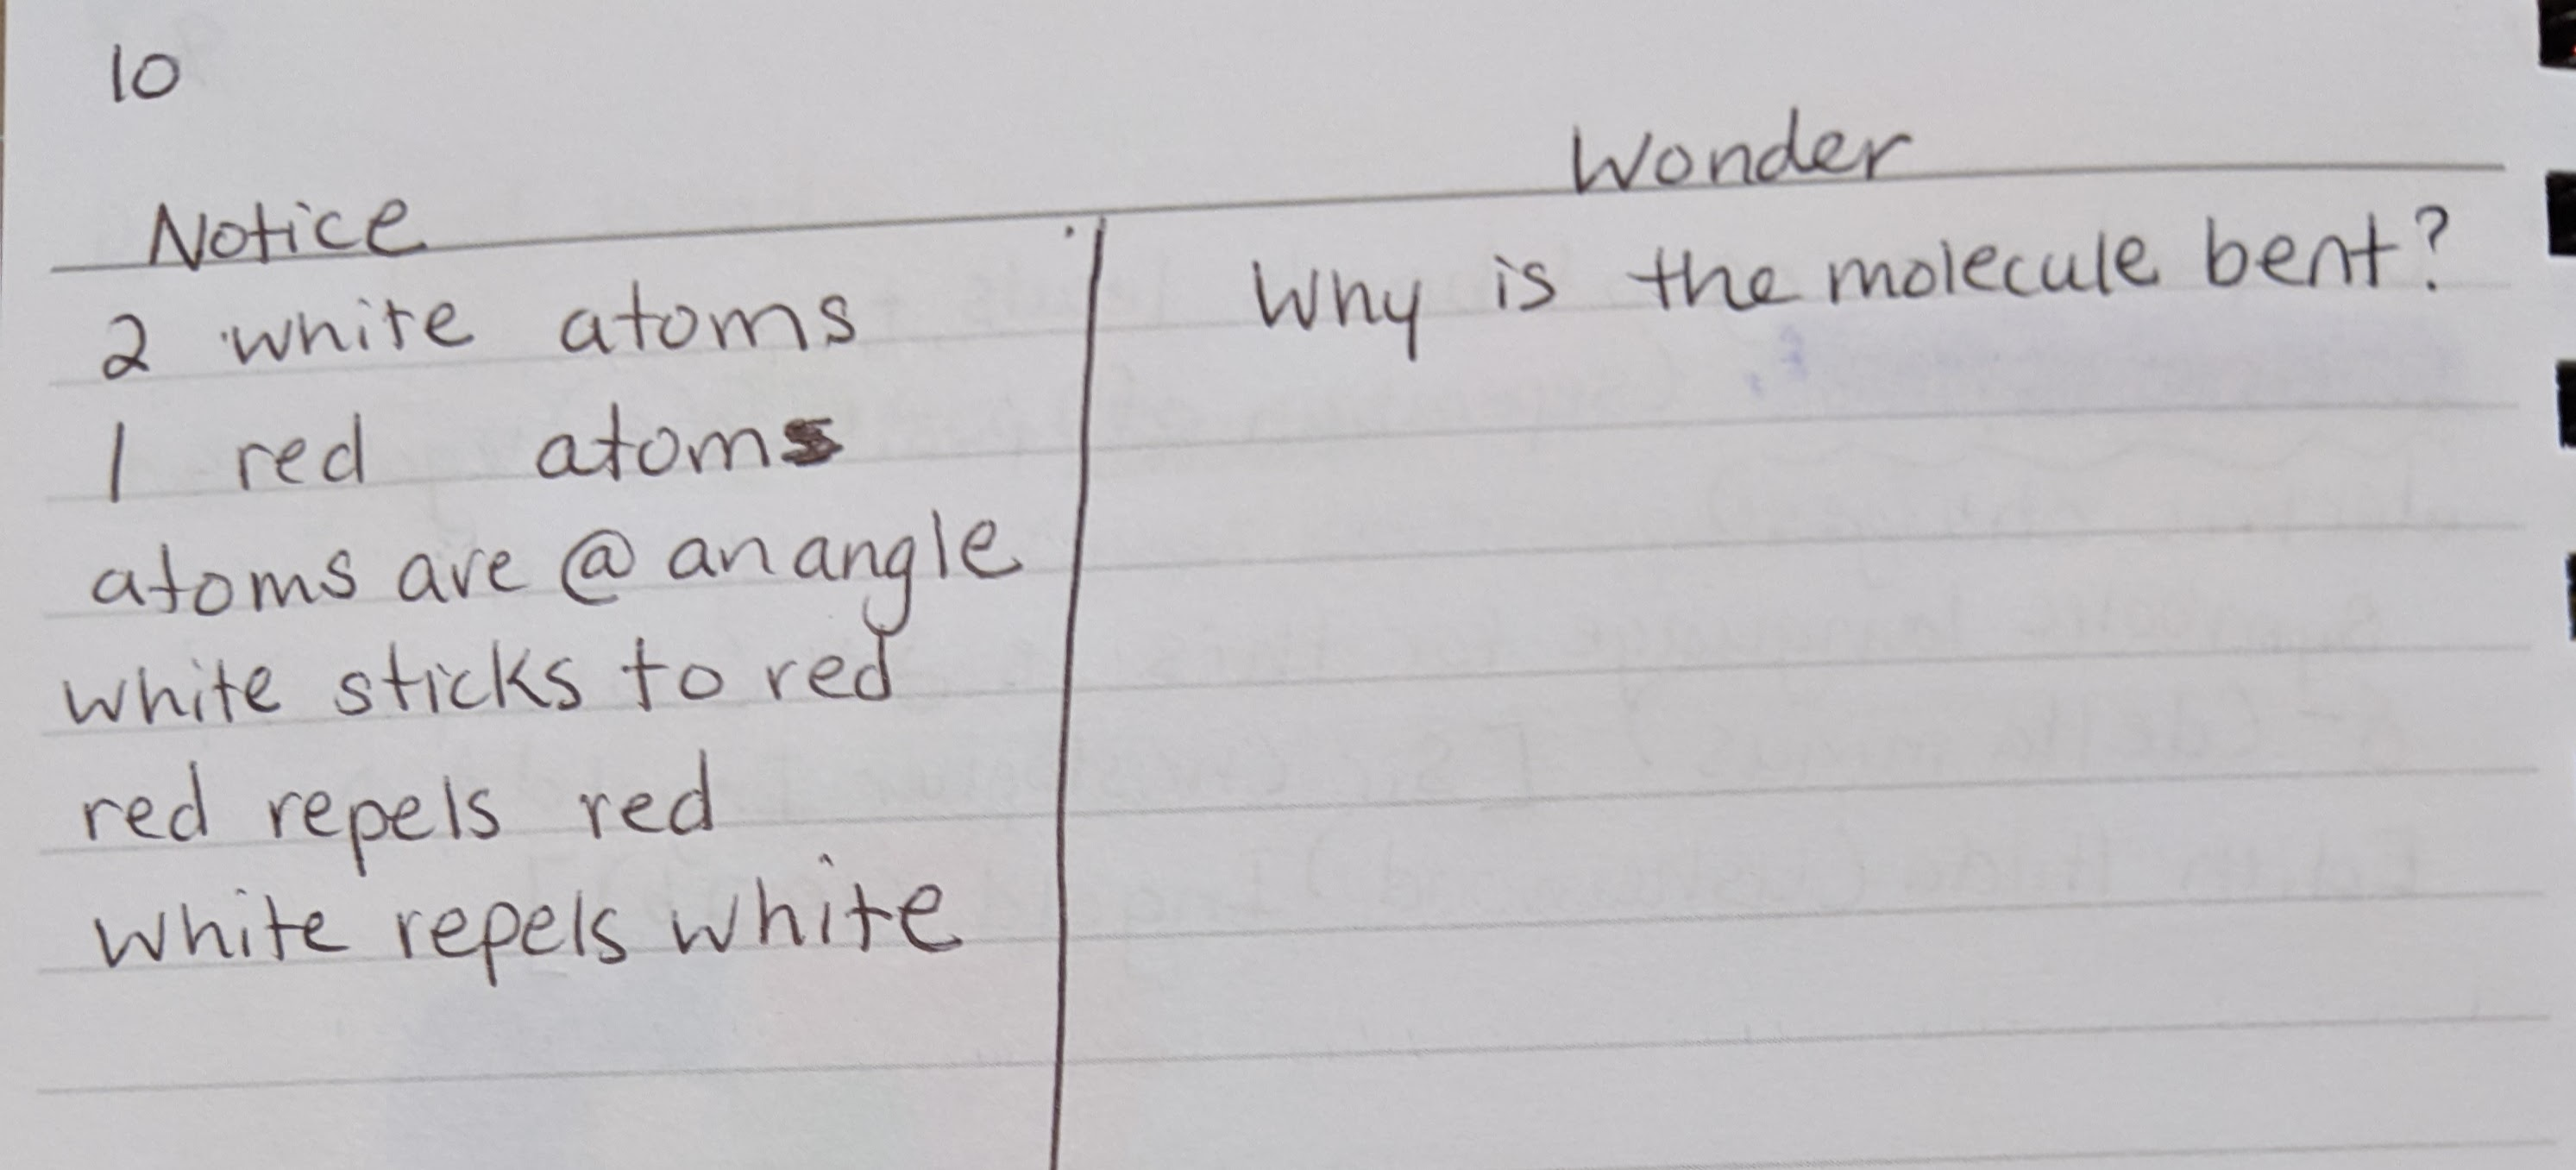 10
Notice
2 white atoms
1 red atoms
atoms are @ an angle
white sticks to red
red repels red
white repels white
Wonder
Why is the molecule bent?